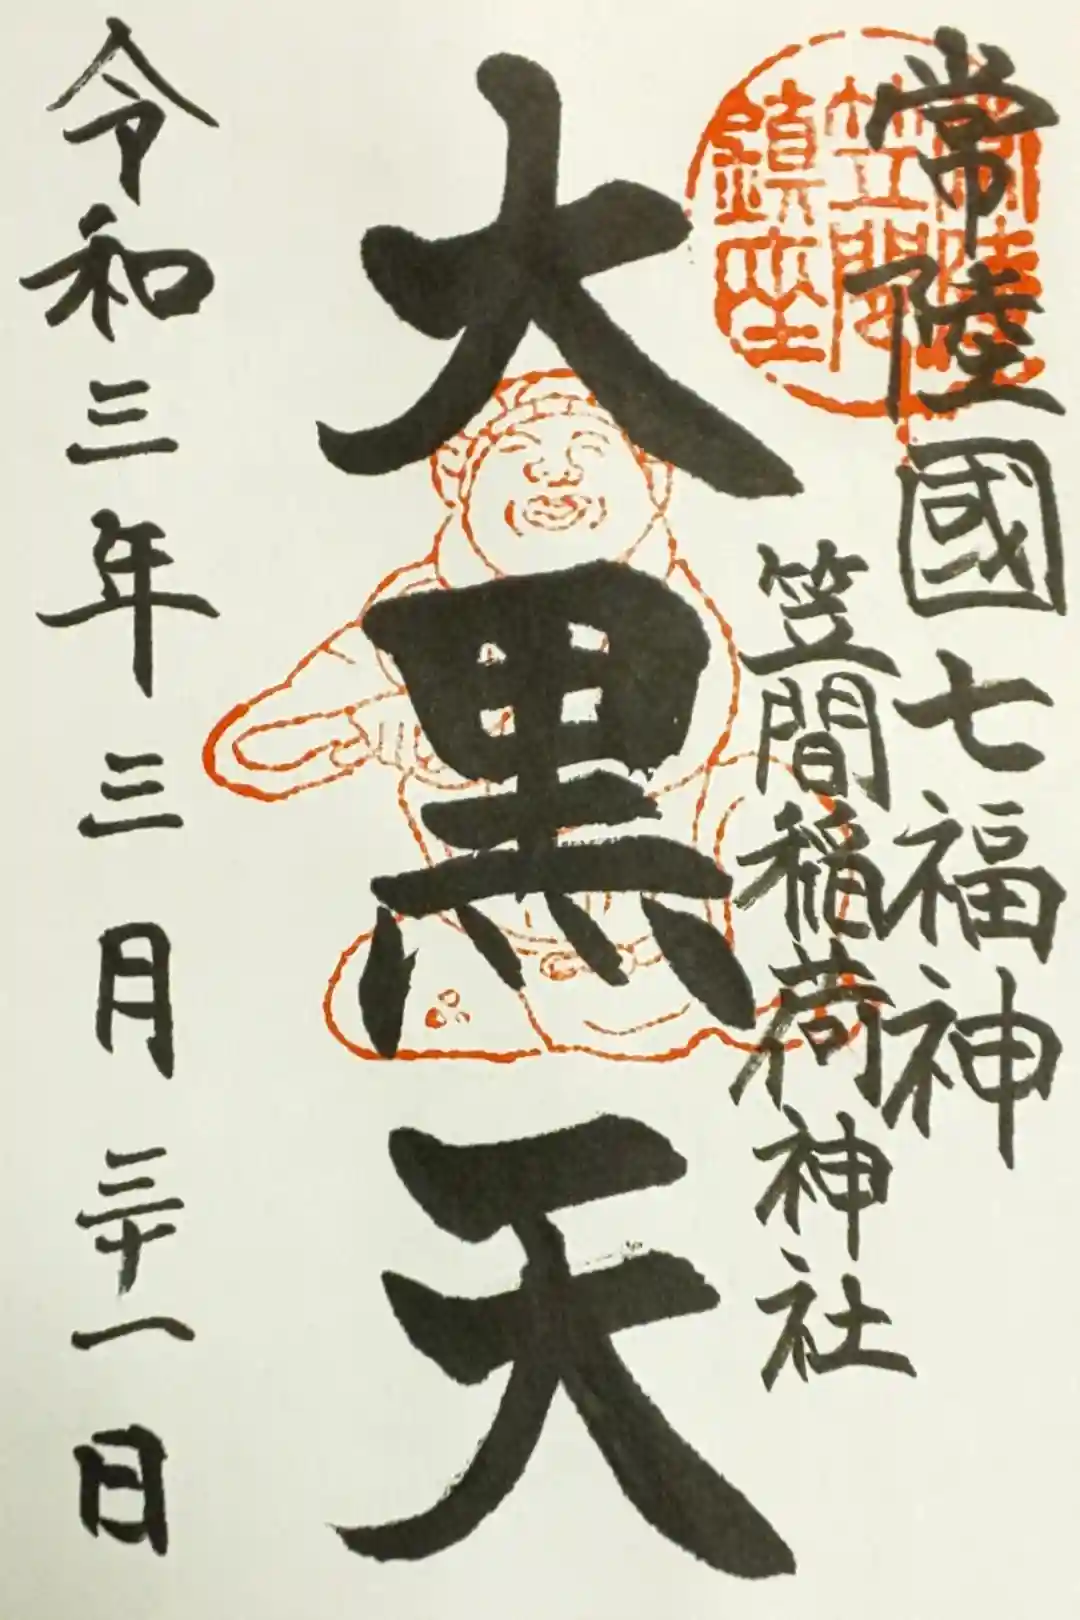 常陸國七福神
笠間稲荷神社
大黒天
令和三年三月三十一日
常陸
笠間
鎮座